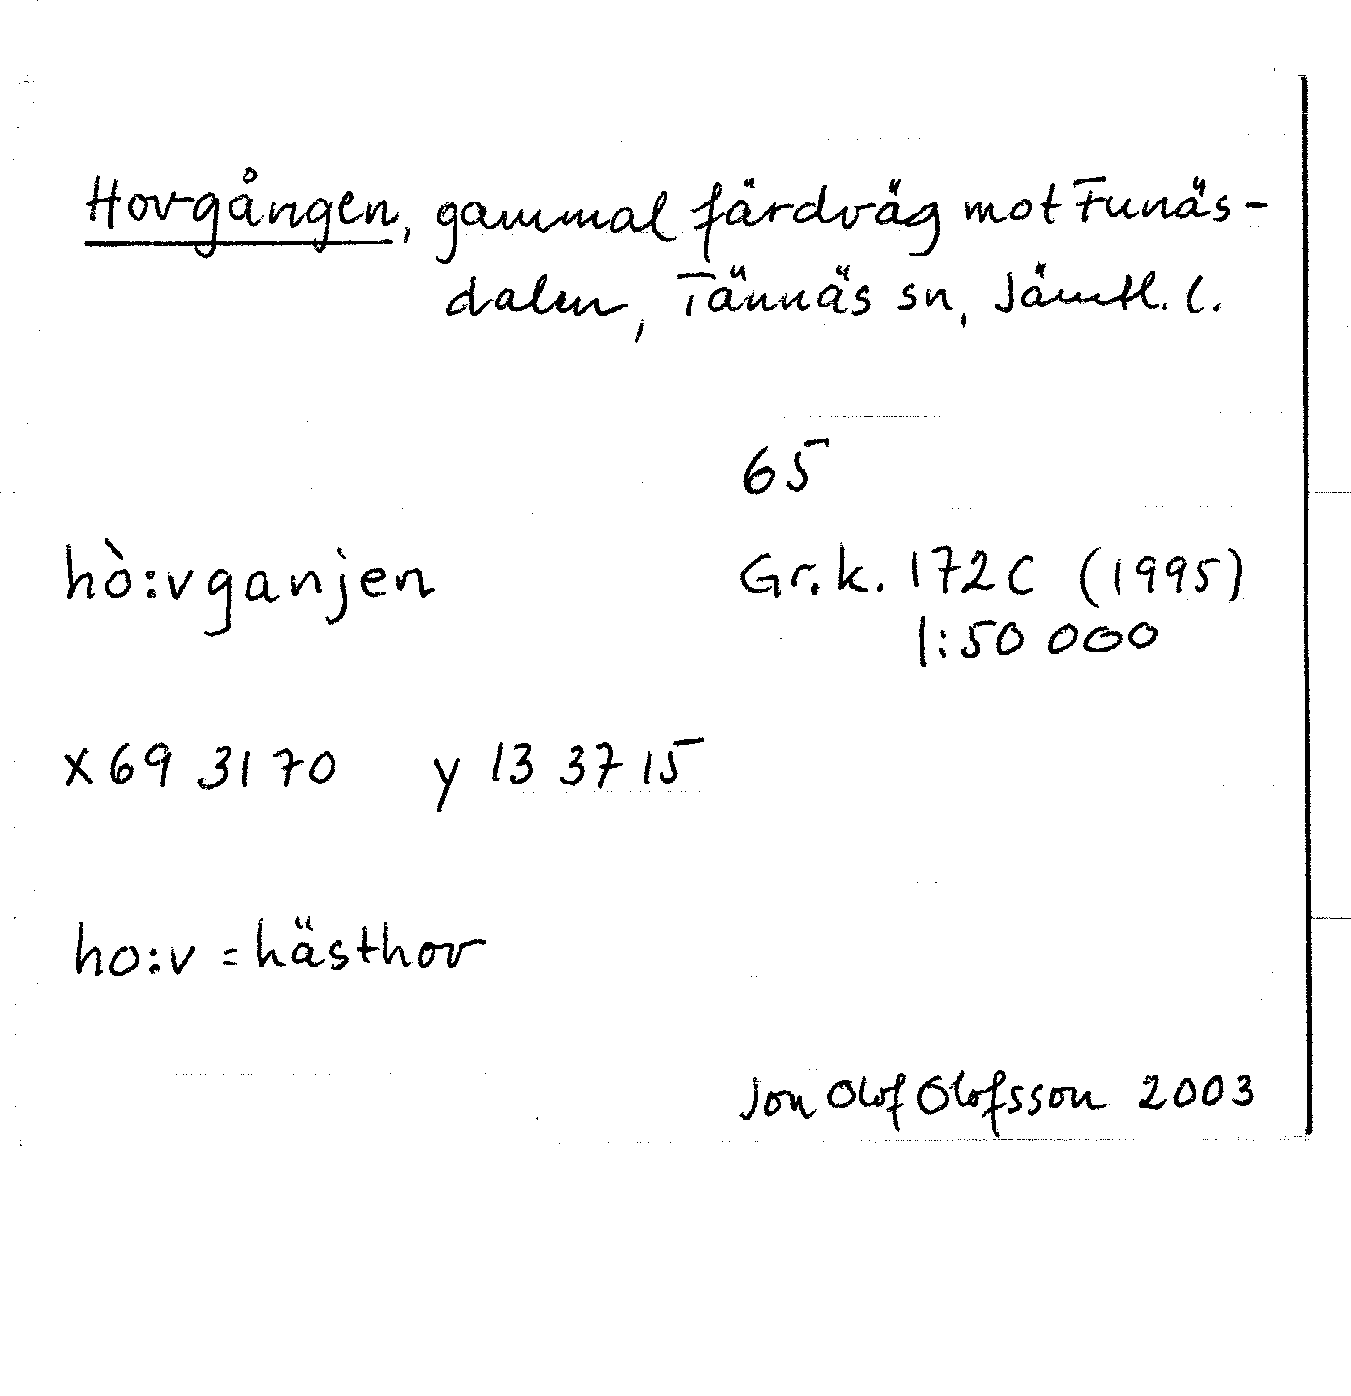 Hovgången, gammal färdväg mot Funäs-
dalen, Tännäs sn, Jämtl. l.
65
hò:vganjen Gr.k. 172C (1995)
1:50 000
x 69 3170 y 13 3715
ho:v = hästhov
Jon Olof Olofsson 2003